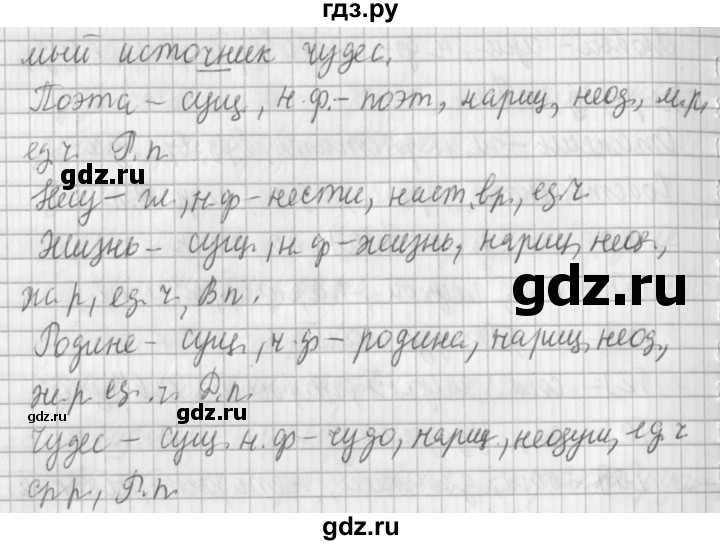 гдз.ру
мый источник чудес.
Поэта – сущ, н.ф.– поэт, нариц, неод, м.р,
ед.ч. Р.п.
gdz.ru
Несу – гл, н.ф – нести, наст.вр, ед.ч
Жизнь – сущ, н.ф – жизнь, нариц, неод,
gdz.ru
жа.р, ед.ч, В.п.
Родине – сущ, н.ф – родина, нариц, неод,
ж.р ед.ч. Д.п.
gdz.ru
gdz.ru
Чудес – сущ. н.ф – чудо, нариц, неодуш, ед.ч
ср.р, Р.п.
gdz.ru
gdz.ru